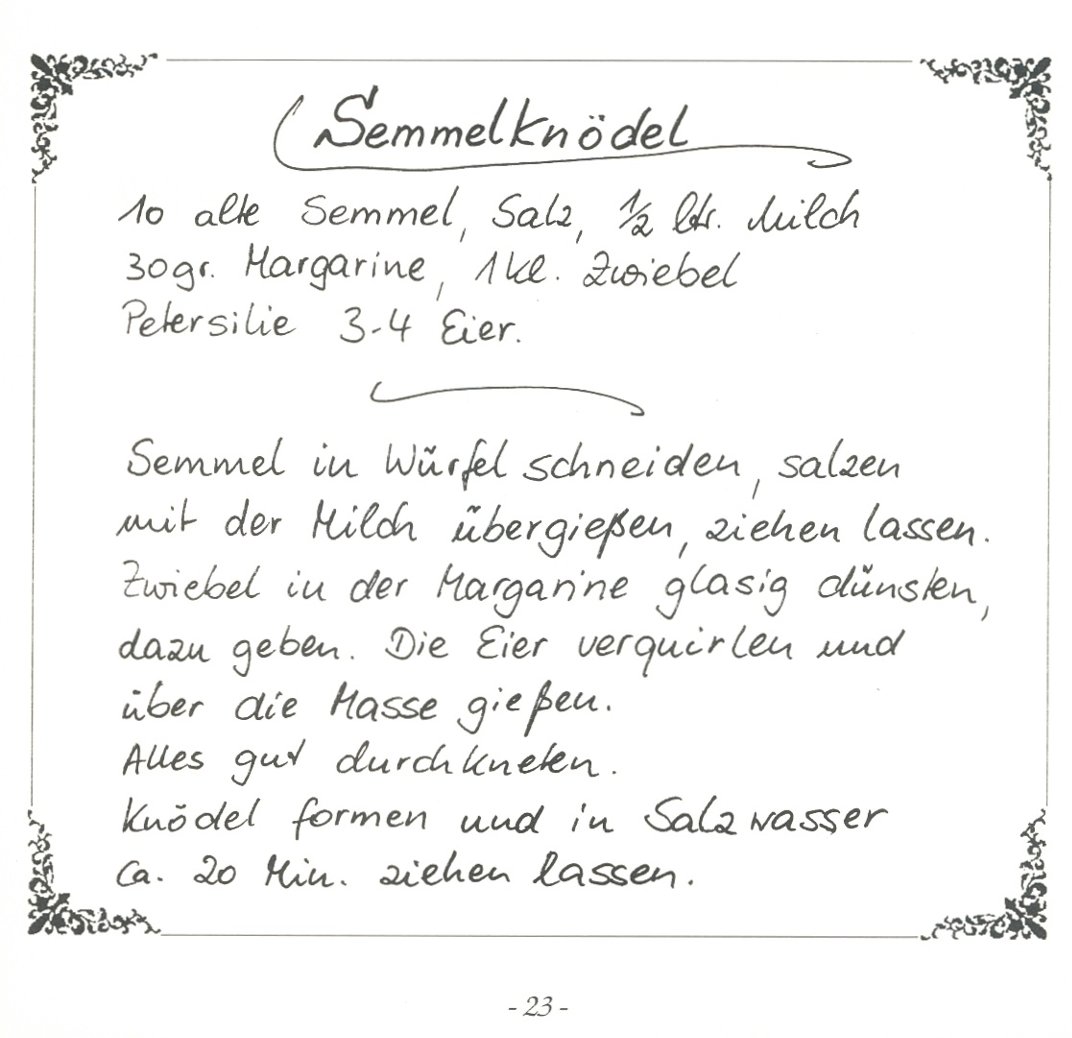 Semmelknödel
10 alte Semmel, Salz, 1/2 ltr. Milch
30gr. Margarine, 1 kl. Zwiebel
Petersilie 3-4 Eier.
Semmel in Würfel schneiden, salzen
mit der Milch übergießen, ziehen lassen.
Zwiebel in der Margarine glasig dünsten,
dazu geben. Die Eier verquirlen und
über die Masse gießen.
Alles gut durchkneten.
Knödel formen und in Salzwasser
ca. 20 Min. ziehen lassen.
- 23 -